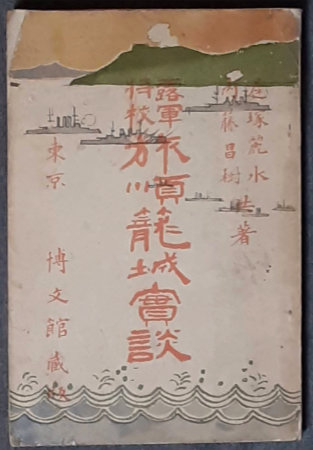 遲塚麗水
内藤昌樹
共著
露軍
將校
旅順籠城實談
東京 博文館藏版